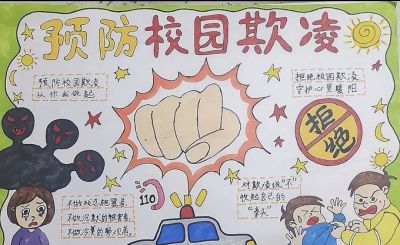 预防校园欺凌
预防校园欺凌
从你我做起
拒绝校园欺凌
守护心里暖阳
拒绝
110
不做校园施暴者,
不做沉默的被害者,
不做冷漠的旁观者.
对欺凌说"不"
收起自己的
"拳头"